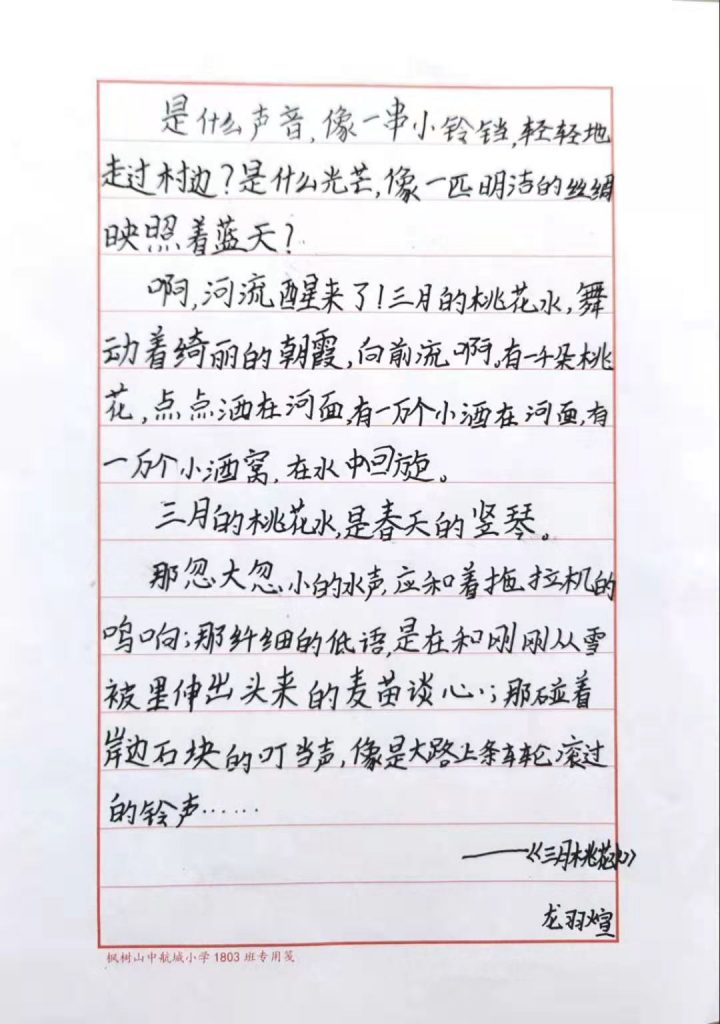 是什么声音,像一串小铃铛,轻轻地
走过村边?是什么光芒,像一匹明洁的丝绸
映照着蓝天?
啊,河流醒来了!三月的桃花水,舞
动着绮丽的朝霞,向前流啊。有一千朵桃
花,点点洒在河面,有一万个小酒在河面,有
一万个小酒窝,在水中回旋。
三月的桃花水,是春天的竖琴。
那忽大忽小的水声,应和着拖拉机的
鸣响;那纤细的低语,是在和刚刚从雪
被里伸出头来的麦苗谈心;那碰着
岸边石块的叮当声,像是大路上条车轮滚过
的铃声……
——《三月桃花水》
龙羽煊
枫树山中航城小学1803班专用笺